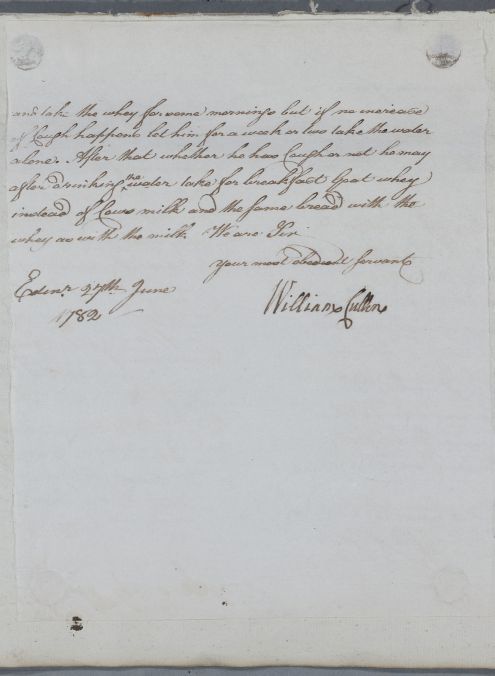 and take the whey for some mornings but if no increase
of Cough happens let him for a week or two take the water
alone. After that whether he has Cough or not he may
after drinking the water take for breakfast Goat whey
instead of Cows milk and the same bread with the
whey as with the milk. We are Sir
your most obedient servants
Edinr. 27th. June
1782
William Cullen